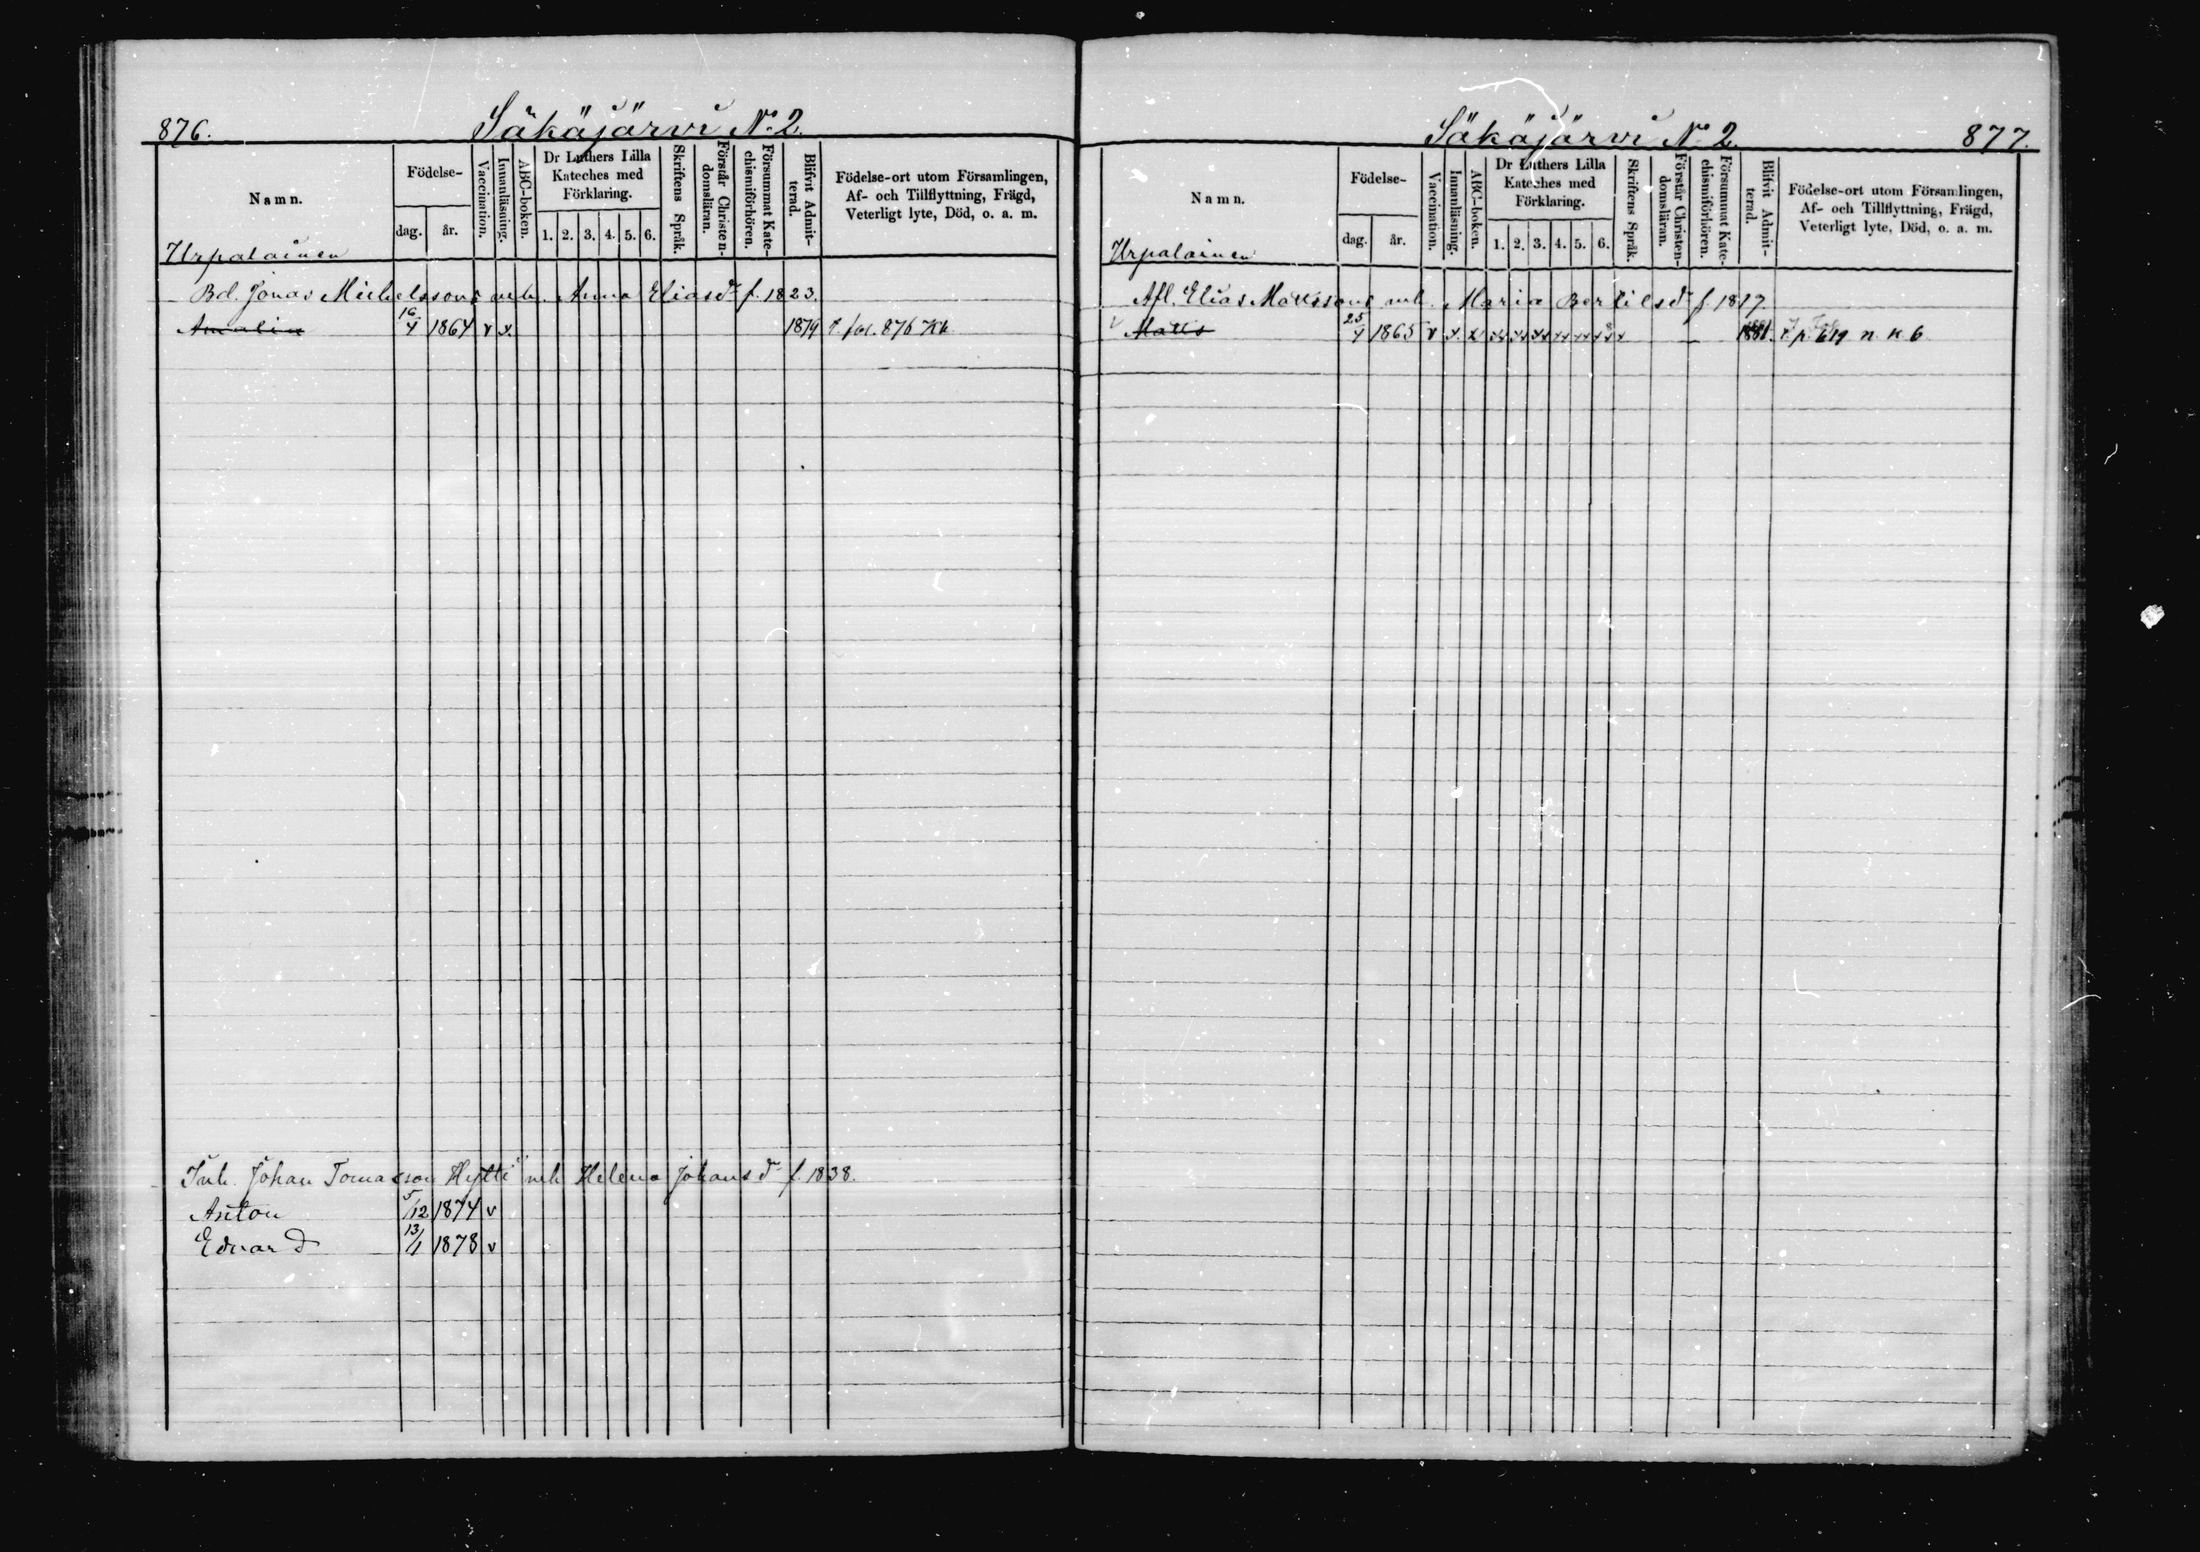 876.
Säkäjärvi No 2.
Namn.
Födelse-
dag.
år.
Vaccination.
Innanläsning.
ABC-boken.
Dr Luthers Lilla
Kateches med
Förklaring.
1. 2. 3. 4. 5. 6.
Skriftens Språk.
Förstår Christen-
domsläran.
Försummat Kate-
chismiförhören.
Blifvit Admit-
terad.
Födelse-ort utom Församlingen,
Af- och Tillflyttning, Frägd,
Veterligt lyte, Död, o. a. m.
Urpalainen
Bd. Jonas Michelssons enk. Anna Eliasdr f. 1823.
Amalia 16/4 1864 v x. 1879 t. fol. 876 Kb.
Inh. Johan Tomasson Hytti enk Helena Johansdr f. 1838.
Anton 5/12 1874 v
Edvard 13/11 1878 v
Säkäjärvi No 2.
877.
Namn.
Födelse-
dag.
år.
Vaccination.
Innanläsning.
ABC-boken.
Dr Luthers Lilla
Kateches med
Förklaring.
1. 2. 3. 4. 5. 6.
Skriftens Språk.
Förstår Christen-
domsläran.
Försummat Kate-
chismiförhören.
Blifvit Admit-
terad.
Födelse-ort utom Församlingen,
Af- och Tillflyttning, Frägd,
Veterligt lyte, Död, o. a. m.
Urpalainen
Afl. Elias Mattssons enk. Maria Bertilsdr f. 1817.
v Matts 25/4 1865 v x. x 1881. t. p. 619 n. K b